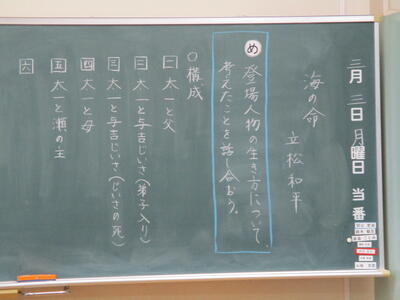 三月三日月曜日 当番
海の命 立松和平
め 登場人物の生き方について、
考えたことを話し合おう。
○構成
一 太一と父
二 太一と与吉じいさ(弟子入り)
三 太一と与吉じいさ(じいさの死)
四 太一と母
五 太一と瀬の主
六